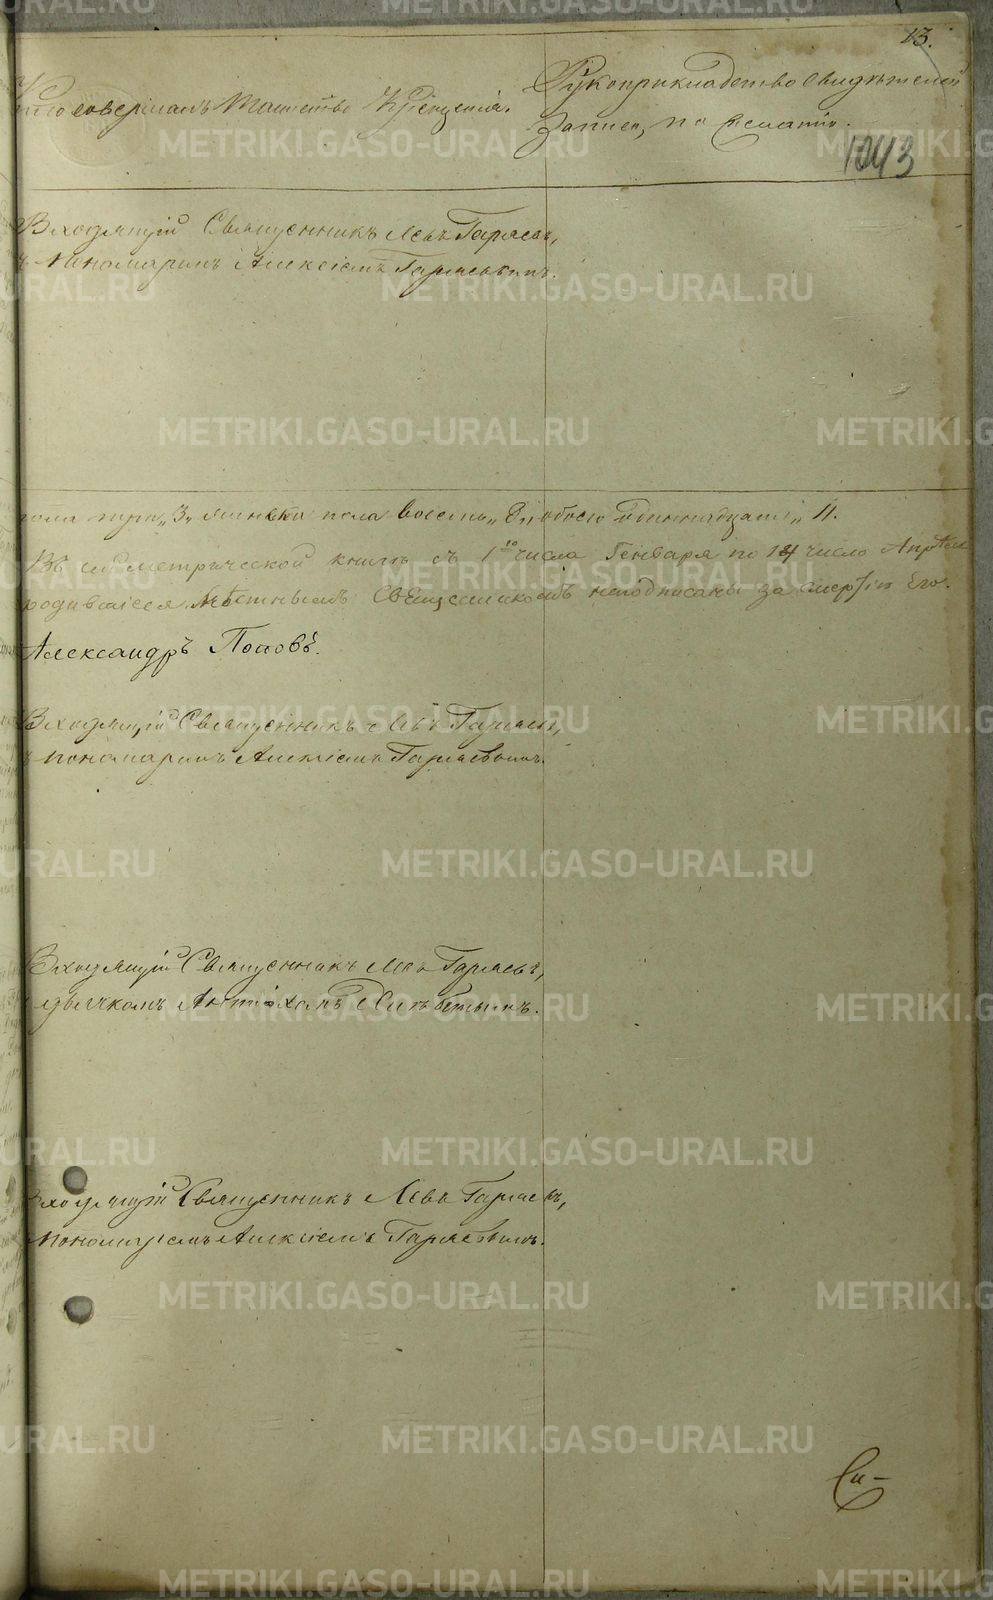 13.
Кто совершалъ Таинство Крещенія.
Рукоприкладство свидѣтелей
записи, по желанію.
1043
Входящій Священникъ Левъ Гаряевъ,
съ пономаремъ Алексіемъ Гаряевымъ.
пола три „3„ женска пола восемь „8„ обоего одиннадцать „11.
Въ сей метрической книгѣ съ 1го числа Генваря по 14 число Апрѣля
родившіеся мѣстнымъ Священникомъ неподписаны за смертію его.
Александръ Поповъ.
Входящій Священникъ Левъ Гаряевъ,
съ пономаремъ Алексіемъ Гаряевымъ.
Входящій Священникъ Левъ Гаряевъ,
дьячкомъ
Входящій Священникъ Левъ Гаряевъ,
пономаремъ Алексіемъ Гаряевымъ.
Си-
METRIKI.GASO-URAL.RU